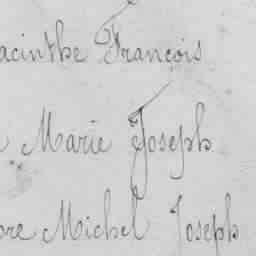 acinthe François
Marie Joseph
ore Michel Joseph